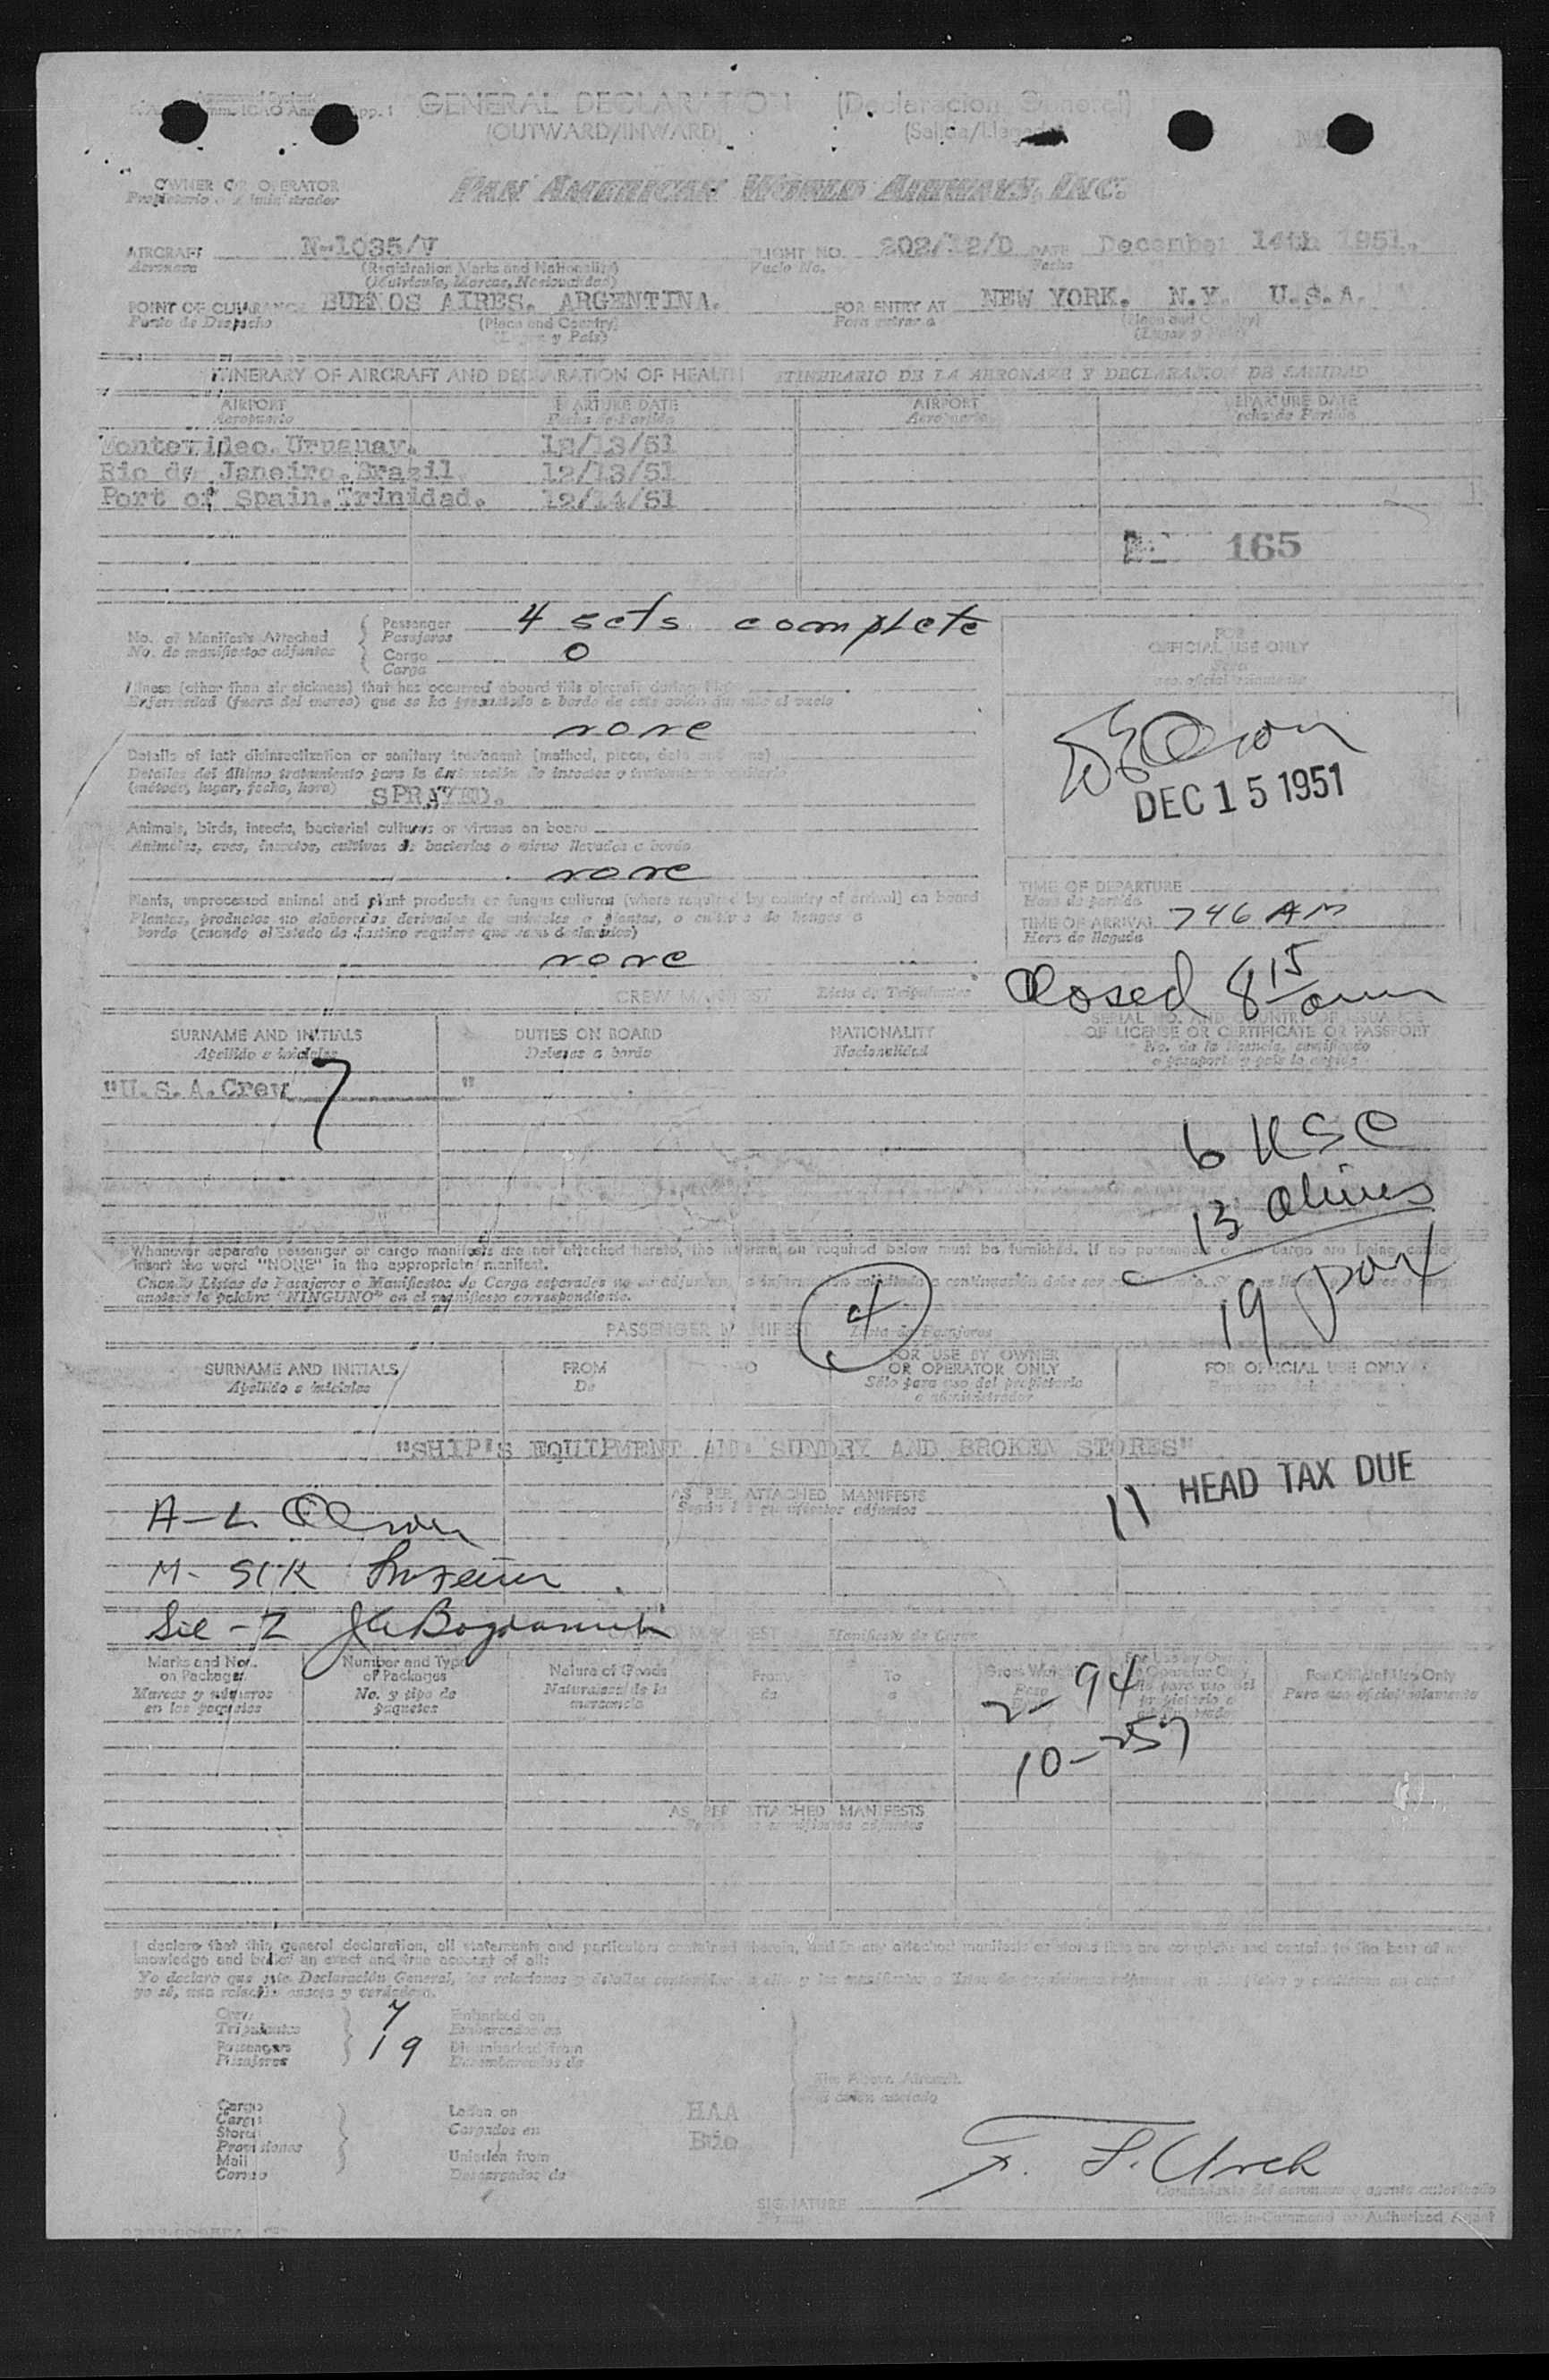 GENERAL DECLARATION (Declaracion General)
(OUTWARD/INWARD) (Salida/Llegada)
OWNER OR OPERATOR
PAN AMERICAN WORLD AIRWAYS, INC.
AIRCRAFT N-1035/V FLIGHT NO. 202/12/D DATE December 14th 1951.
Aeronave (Registration Marks and Nationality) Vuelo No. Fecha
(Matricula, Marcas, Nacionalidad)
POINT OF CLEARANCE BUENOS AIRES. ARGENTINA. FOR ENTRY AT NEW YORK. N.Y. U.S.A.
Punto de Despacho (Place and Country) Para entrar a (Place and Country)
ITINERARY OF AIRCRAFT AND DECLARATION OF HEALTH ITINERARIO DE LA AERONAVE Y DECLARACION DE SANIDAD
AIRPORT DEPARTURE DATE AIRPORT DEPARTURE DATE
Aeropuerto Fecha de Partida Aeropuerto Fecha de Partida
Montevideo.Uruguay. 12/13/51
Rio de Janeiro.Brazil. 12/13/51
Port of Spain.Trinidad. 12/14/51
165
No. of Manifests Attached Passenger 4 sets complete
No. de manifiestos adjuntos Pasajeros
Cargo 0
Carga
FOR
OFFICIAL USE ONLY
Para
uso oficial solamente
Illness (other than air sickness) that has occurred aboard this aircraft during flight
Enfermedad (fuera del mareo) que se ha presentado a bordo de este avión durante el vuelo
none
Details of last disinsectization or sanitary treatment (method, place, date and time)
(método, lugar, fecha, hora) SPRAYED.
DEC 15 1951
Animals, birds, insects, bacterial cultures or viruses on board
Animales, aves, insectos, cultivos de bacterias o virus llevados a bordo
none
Plants, unprocessed animal and plant products or fungus cultures (where required by country of arrival) on board
Plantas, productos no elaborados derivados de animales o plantas, o cultivo de hongos a
bordo (cuando el Estado de destino requiere que sean declarados)
none
TIME OF DEPARTURE
Hora de partida
TIME OF ARRIVAL 746 AM
Hora de llegada
Closed 8 15 am
CREW MANIFEST Lista de Tripulantes
SURNAME AND INITIALS DUTIES ON BOARD NATIONALITY SERIAL NO. AND COUNTRY OF ISSUANCE
OF LICENSE OR CERTIFICATE OR PASSPORT
Apellido e iniciales Deberes a bordo Nacionalidad No. de la licencia, certificado
o pasaporte y país lo expide
"U.S.A.Crew 7 "
6 USC
13 Aliens
19 pax
Whenever separate passenger or cargo manifests are not attached hereto, the information required below must be furnished. If no passengers or no cargo are being carried
insert the word "NONE" in the appropriate manifest.
anotese la palabra "NINGUNO" en el manifiesto correspondiente.
4
PASSENGER MANIFEST Lista de Pasajeros
SURNAME AND INITIALS FROM TO FOR USE BY OWNER
OR OPERATOR ONLY FOR OFFICIAL USE ONLY
Apellido e iniciales De Sólo para uso del propietario
o administrador
"SHIP'S EQUIPMENT AND SUNDRY AND BROKEN STORES"
AS PER ATTACHED MANIFESTS
11 HEAD TAX DUE
A-L. Olson
M- SIK
CARGO MANIFEST Manifiesto de Carga
Marks and Nos. on Packages Number and Type of Packages Nature of Goods From To Gross Weight For Official Use Only
Marcas y números en los paquetes No. y tipo de paquetes Naturaleza de la mercancía de a Peso Para uso oficial solamente
2- 94
10-257
AS PER ATTACHED MANIFESTS
I declare that this general declaration, all statements and particulars contained therein, and in any attached manifests or stores lists are complete and contain to the best of my
knowledge and belief an exact and true account of all:
Crew 7 Embarked on
Tripulantes Embarcados en
Passengers 19 Disembarked from
Pasajeros Desembarcados de
Cargo Laden on HAA
Carga Cargados en Báo
Stores
Provisiones
Mail Unladen from
Correo Descargados de
F. F. Urch
SIGNATURE
Pilot-in-Command or Authorized Agent